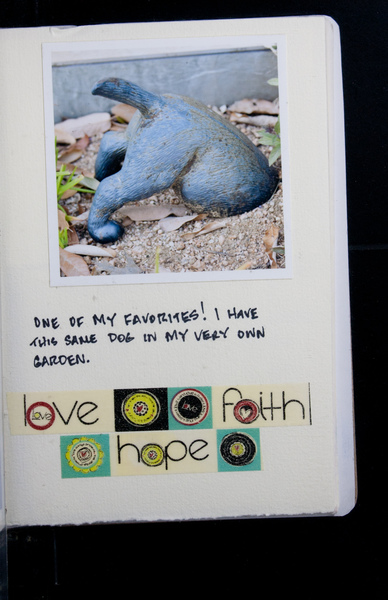 ONE OF MY FAVORITES! I HAVE
THIS SAME DOG IN MY VERY OWN
GARDEN.
love faith
hope